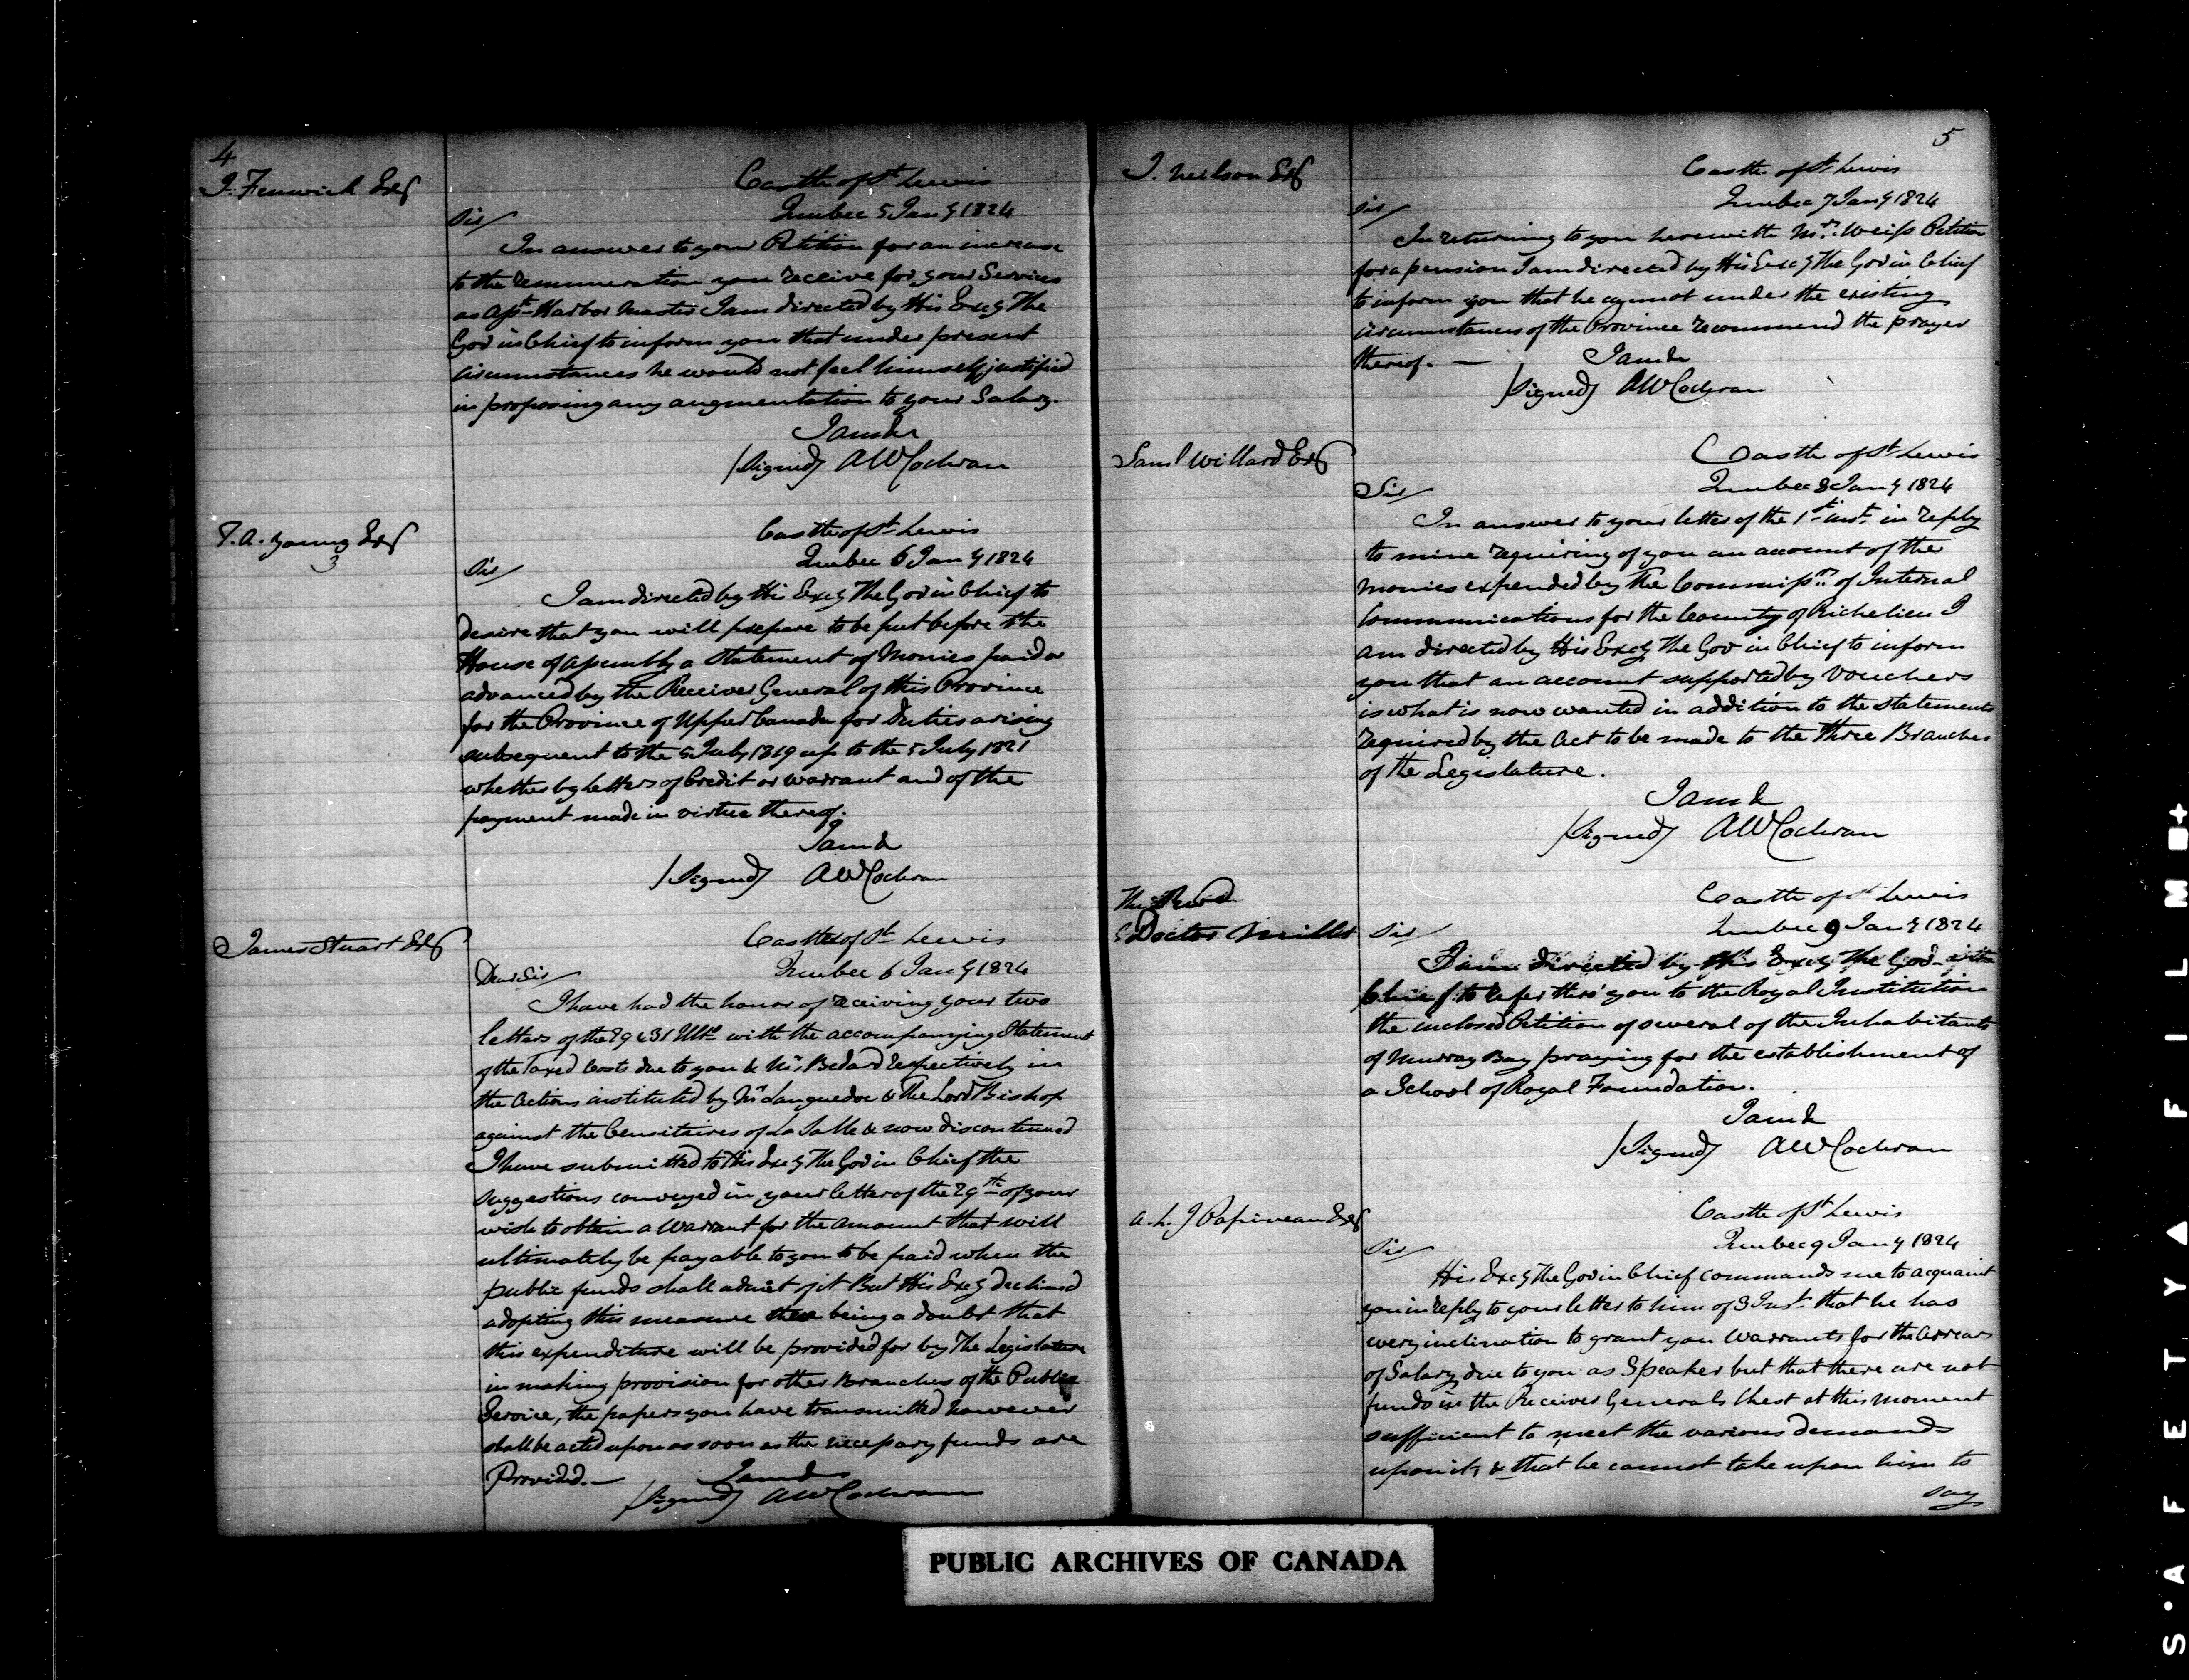 4
J. Fenwick Esqr
Castle of St Lewis
Quebec 5 Jany 1824
Sir/
In answer to your Petition for an increase
to the remuneration you receive for your Services
as Asst Harbor Master I am directed by His Excy The
Gov in Chief to inform you that under present
circumstances he would not feel himself justified
in proposing any augmentation to your Salary.
I am &c
/Signed/ AWCochran
T. A. Young Esqr
3
Castle of St Lewis
Quebec 6 Jany 1824
Sir/
I am directed by His Excy The Gov in Chief to
desire that you will prepare to be put before the
House of Assembly a Statement of Monies paid or
advanced by the Receiver General of this Province
for the Province of Upper Canada for Duties arising
subsequent to the 5 July 1819 up to the 5 July 1821
whether by Letters of Credit or Warrant and of the
payment made in virtue thereof.
I am &
/Signed/ AWCochran
James Stuart Esqr
Castle of St Lewis
Quebec 6 Jany 1824
Dear Sir/
I have had the honor of receiving your two
letters of the 29 & 31 Ulto with the accompanying Statement
of the Taxed Costs due to you & Mr Bedard respectively in
the Actions instituted by Mr Languedoc & The Lord Bishop
against the Censitaires of La Salle & now discontinued
I have submitted to His Excy The Gov in Chief the
suggestions conveyed in your letter of the 29th of your
wish to obtain a Warrant for the amount that will
ultimately be payable to you to be paid when the
public funds shall admit of it But His Excy declined
adopting this measure there being a doubt that
this expenditure will be provided for by The Legislature
in making provision for other Branches of the Public
Service, the papers you have transmitted however
shall be acted upon as soon as the necessary funds are
Provided.—
I am &
/Signed/ AWCochran
5
J. Neilson Esqr
Castle of St Lewis
Quebec 7 Jany 1824
Sir/
In returning to you herewith Mrs. Weiss Petition
for a pension I am directed by His Excy The Gov in Chief
to inform you that he cannot under the existing
circumstances of the Province recommend the prayer
thereof. —
I am &c
/Signed/ AWCochran
Saml Willard Esqr
Castle of St Lewis
Quebec 8 Jany 1824
Sir/
In answer to your letter of the 1st inst. in reply
to mine requiring of you an account of the
monies expended by the Commissrs of Internal
Communications for the County of Richelieu I
am directed by His Excy The Gov in Chief to inform
you that an account supported by Vouchers
is what is now wanted in addition to the Statements
required by the Act to be made to the Three Branches
of the Legislature.
I am &
/Signed/ AWCochran
The Revd
Doctor Mills
Castle of St Lewis
Quebec 9 Jany 1824
Sir/
I am directed by His Excy The Gov in
Chief to refer thro' you to the Royal Institution
the inclosed Petition of several of the Inhabitants
of Murray Bay praying for the establishment of
a School of Royal Foundation.
I am &
/Signed/ AWCochran
A. L. J Papineau Esqr
Castle of St Lewis
Quebec 9 Jany 1824
Sir/
His Excy The Gov in Chief commands me to acquaint
you in reply to your letter to him of 3 Inst. that he has
every inclination to grant you Warrants for the Arrears
of Salary due to you as Speaker but that there are not
funds in the Receiver Generals Chest at this moment
sufficient to meet the various demands
upon it, & that he cannot take upon him to
say
PUBLIC ARCHIVES OF CANADA
S·A F E T Y ▲ F I L M